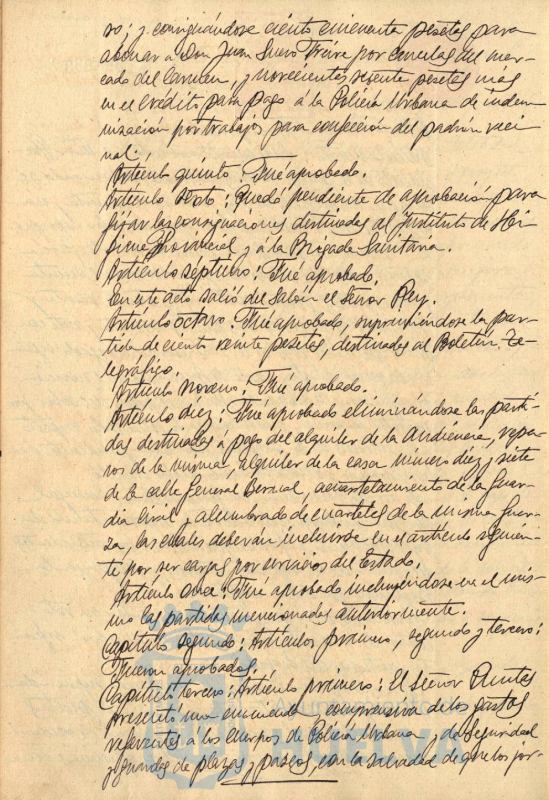 so; y consignándose ciento cincuenta pesetas para
abonar a Don Juan Suero Freire por cancelas del mer-
cado del Carmen, y novecientas sesenta pesetas mas
en el crédito para pago á la Policía Urbana de indem-
nización por trabajos para confección del padrón veci-
nal.
Artículo quinto: Fué aprobado.
Artículo sexto: Quedó pendiente de aprobación para
fijar las consignaciones destinadas al Instituto de Hi-
giene provincial y á la Brigada Sanitaria.
Artículo séptimo: Fué aprobado.
En este acto salió del Salón el Señor Rey.
Artículo octavo: Fué aprobado, suprimiéndose la par-
tida de ciento veinte pesetas, destinadas al Boletín Te-
legráfico.
Artículo noveno: Fué aprobado.
Artículo diez: Fué aprobado eliminándose las parti-
das destinadas á pago del alquiler de la Audiencia, repa-
ros de la misma, alquiler de la casa número diez y siete
de la calle General Bernal, acuartelamiento de la Guar-
dia Civil y alumbrado de cuarteles de la misma fuer-
za, las cuales deberán incluirse en el artículo siguien-
te por ser cargas por servicios del Estado.
Artículo once: Fué aprobado incluyéndose en el mis-
mo las partidas mencionadas anteriormente.
Capítulo segundo: Artículos primero, segundo y tercero:
Fueron aprobados.
Capítulo tercero: Artículo primero: El Señor
presentó una enmienda comprensiva de los gastos
referentes á los cuerpos de Policía Urbana y de Seguridad
y guardas de plazas y paseos, con la salvedad de que los jor-